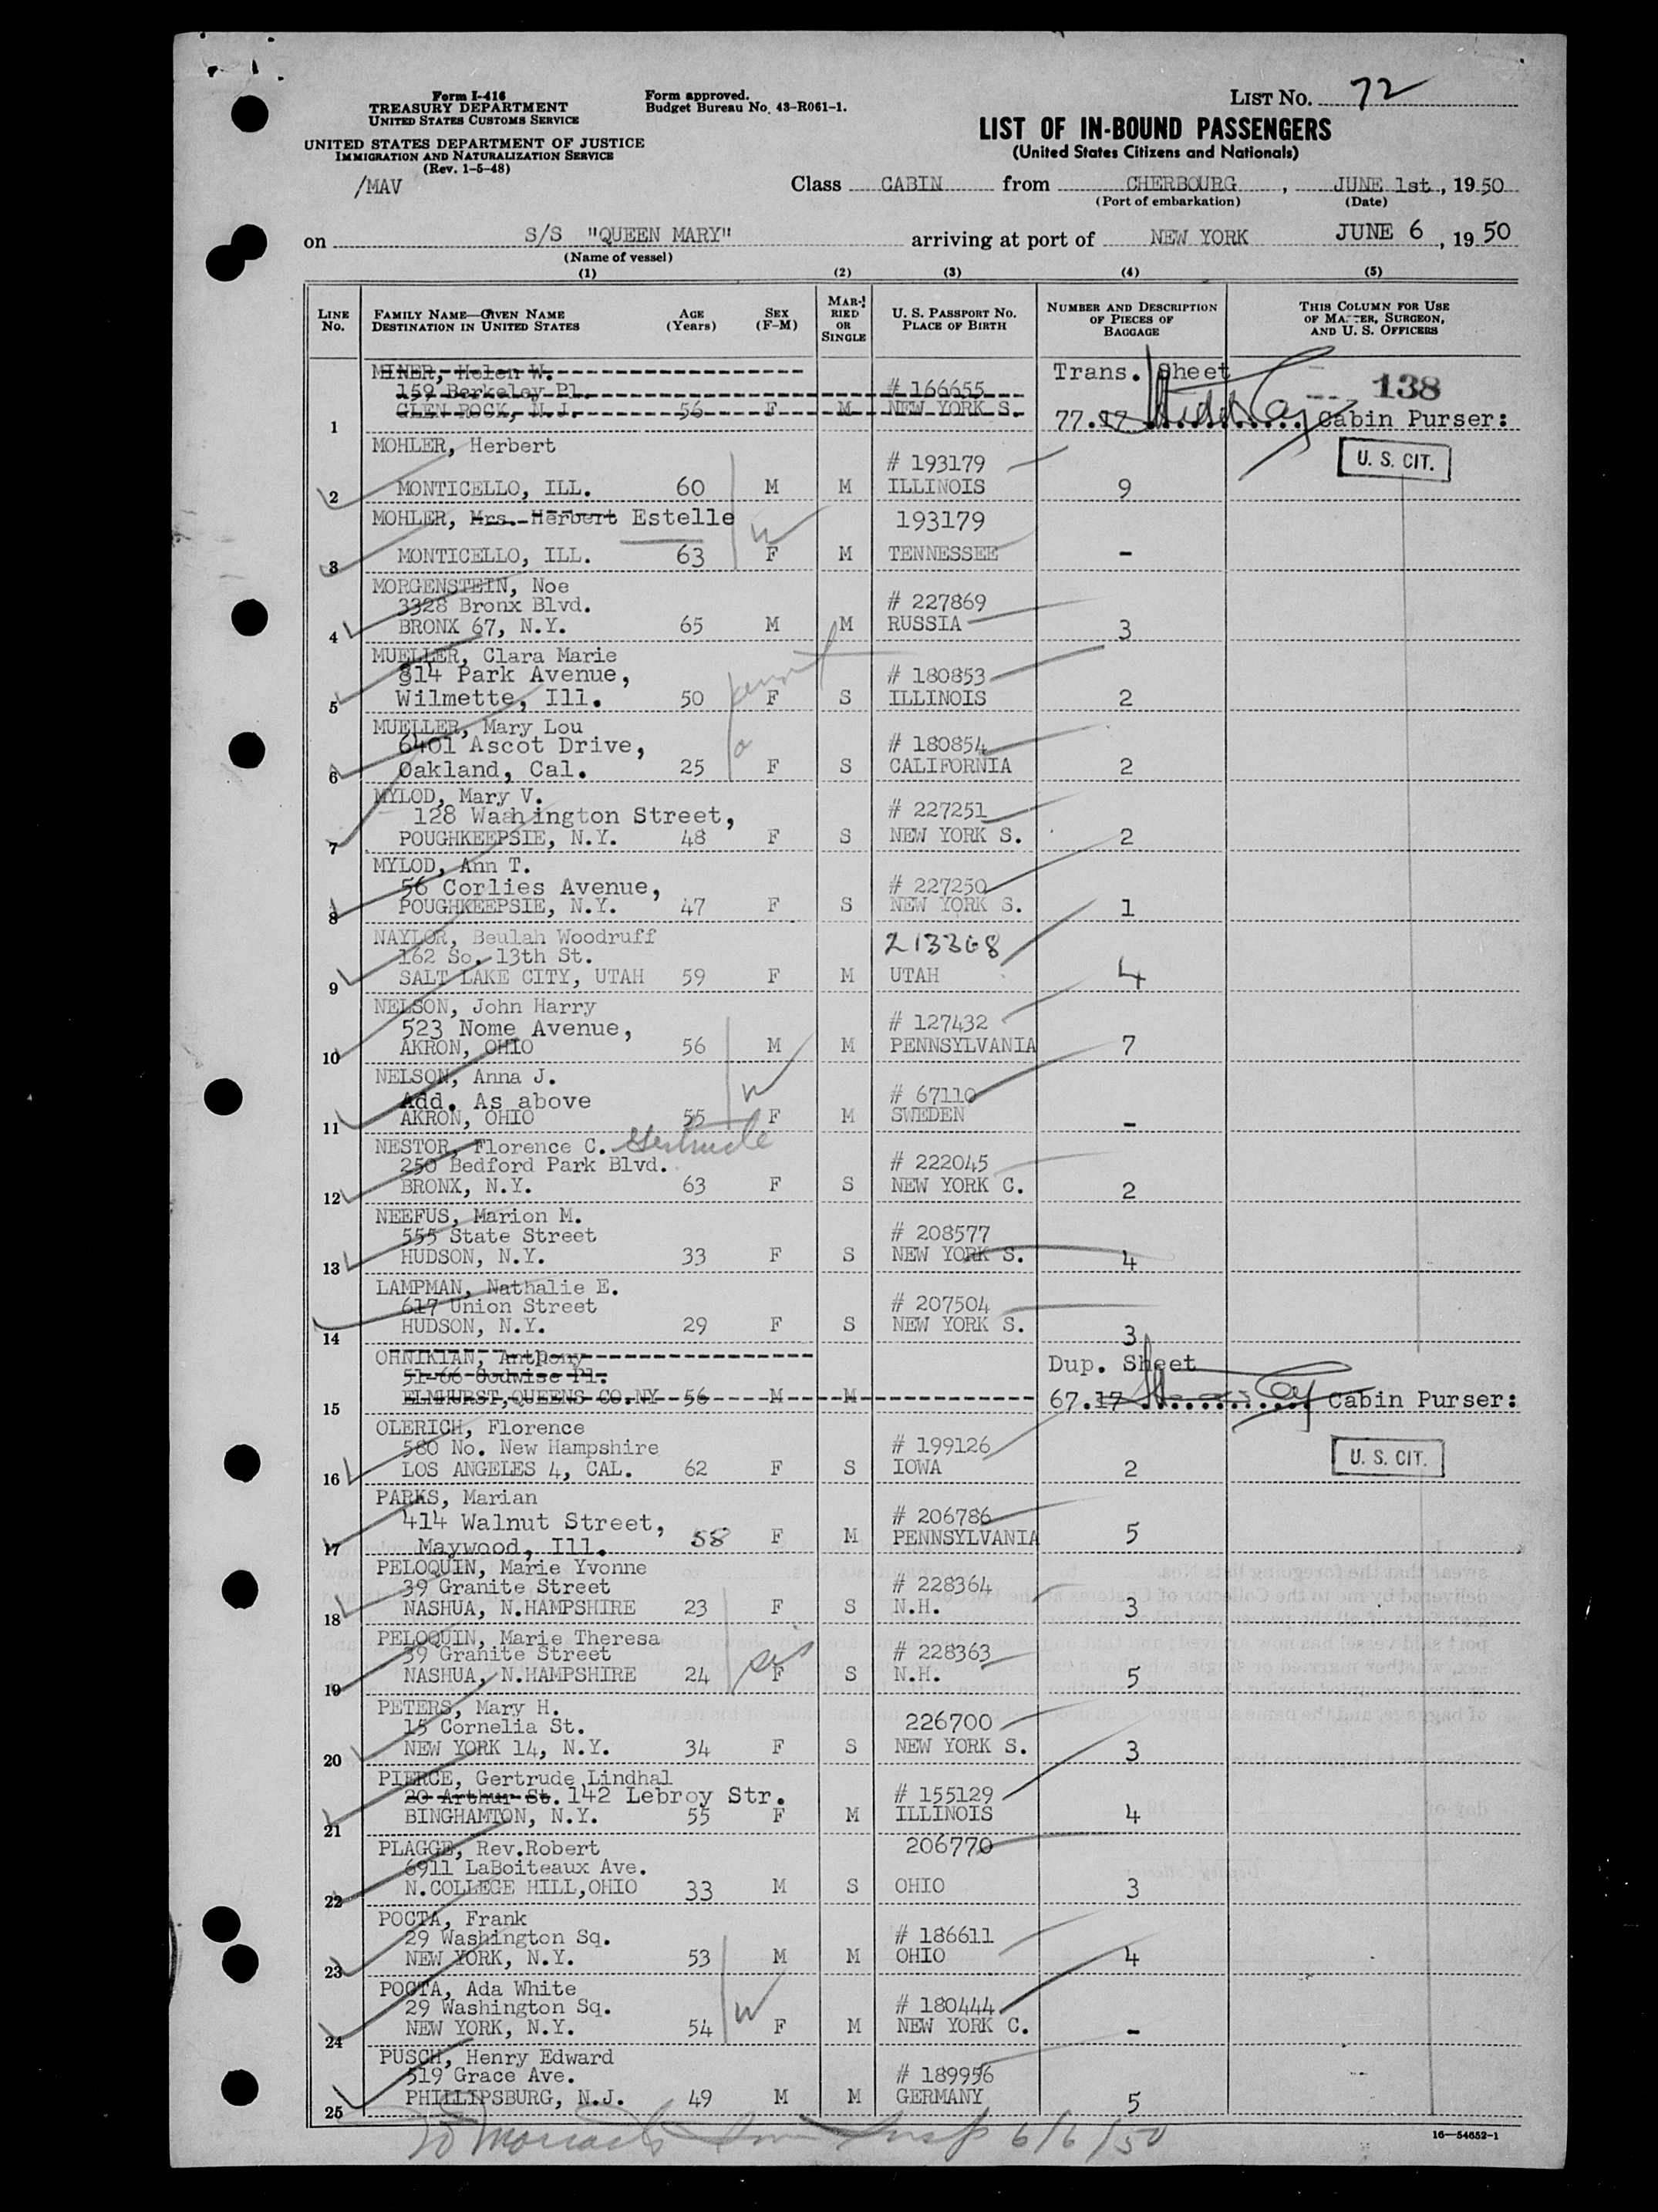 Form I-416
TREASURY DEPARTMENT
UNITED STATES CUSTOMS SERVICE
UNITED STATES DEPARTMENT OF JUSTICE
IMMIGRATION AND NATURALIZATION SERVICE
(Rev. 1-5-48)
/MAV
Form approved.
Budget Bureau No. 43-R061-1.
LIST NO. 72
LIST OF IN-BOUND PASSENGERS
(United States Citizens and Nationals)
Class CABIN from CHERBOURG, JUNE 1st, 1950
(Port of embarkation) (Date)
on S/S "QUEEN MARY" arriving at port of NEW YORK JUNE 6, 1950
(Name of vessel)
(1) (2) (3) (4) (5)
LINE No. FAMILY NAME—GIVEN NAME DESTINATION IN UNITED STATES AGE (Years) SEX (F-M) MARRIED OR SINGLE U. S. PASSPORT NO. PLACE OF BIRTH NUMBER AND DESCRIPTION OF PIECES OF BAGGAGE THIS COLUMN FOR USE OF MASTER, SURGEON, AND U. S. OFFICERS
MINER, Helen W. Trans. Sheet 138
159 Berkeley Pl. # 166655
1 GLEN ROCK, N.J. 56 F M NEW YORK S. 77.17 Cabin Purser:
MOHLER, Herbert # 193179 U. S. CIT.
2 MONTICELLO, ILL. 60 M M ILLINOIS 9
MOHLER, Mrs. Herbert Estelle 193179
3 MONTICELLO, ILL. 63 W F M TENNESSEE -
MORGENSTEIN, Noe
3328 Bronx Blvd. # 227869
4 BRONX 67, N.Y. 65 M M RUSSIA 3
MUELLER, Clara Marie
814 Park Avenue, # 180853
5 Wilmette, Ill. 50 aunt F S ILLINOIS 2
MUELLER, Mary Lou
6401 Ascot Drive, # 180854
6 Oakland, Cal. 25 F S CALIFORNIA 2
MYLOD, Mary V.
128 Waahington Street, # 227251
7 POUGHKEEPSIE, N.Y. 48 F S NEW YORK S. 2
MYLOD, Ann T.
56 Corlies Avenue, # 227250
8 POUGHKEEPSIE, N.Y. 47 F S NEW YORK S. 1
NAYLOR, Beulah Woodruff 213368
162 So. 13th St.
9 SALT LAKE CITY, UTAH 59 F M UTAH 4
NELSON, John Harry
523 Nome Avenue, # 127432
10 AKRON, OHIO 56 M M PENNSYLVANIA 7
NELSON, Anna J.
Add. As above # 67110
11 AKRON, OHIO 55 W F M SWEDEN -
NESTOR, Florence C. Gertrude
250 Bedford Park Blvd. # 222045
12 BRONX, N.Y. 63 F S NEW YORK C. 2
NEEFUS, Marion M.
555 State Street # 208577
13 HUDSON, N.Y. 33 F S NEW YORK S. 4
LAMPMAN, Nathalie E.
617 Union Street # 207504
14 HUDSON, N.Y. 29 F S NEW YORK S. 3
OHNIKIAN, Anthony Dup. Sheet
51-66 Codwise Pl.
15 ELMHURST, QUEENS CO. NY 56 M M 67.17 Cabin Purser:
OLERICH, Florence
580 No. New Hampshire # 199126 U. S. CIT.
16 LOS ANGELES 4, CAL. 62 F S IOWA 2
PARKS, Marian
414 Walnut Street, # 206786
17 Maywood, Ill. 58 F M PENNSYLVANIA 5
PELOQUIN, Marie Yvonne
39 Granite Street # 228364
18 NASHUA, N.HAMPSHIRE 23 F S N.H. 3
PELOQUIN, Marie Theresa
39 Granite Street # 228363
19 NASHUA, N.HAMPSHIRE 24 sis F S N.H. 5
PETERS, Mary H.
15 Cornelia St. 226700
20 NEW YORK 14, N.Y. 34 F S NEW YORK S. 3
PIERCE, Gertrude Lindhal
20 Arthur St. 142 Lebroy Str. # 155129
21 BINGHAMTON, N.Y. 55 F M ILLINOIS 4
PLAGGE, Rev.Robert 206770
6911 LaBoiteaux Ave.
22 N.COLLEGE HILL,OHIO 33 M S OHIO 3
POCTA, Frank
29 Washington Sq. # 186611
23 NEW YORK, N.Y. 53 M M OHIO 4
POCTA, Ada White
29 Washington Sq. # 180444
24 NEW YORK, N.Y. 54 W F M NEW YORK C. -
PUSCH, Henry Edward
519 Grace Ave. # 189956
25 PHILLIPSBURG, N.J. 49 M M GERMANY 5
Insp 6/6/50
16—54652-1